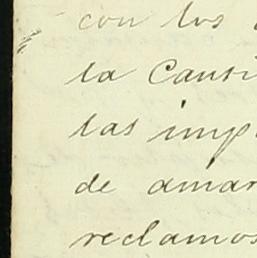 con los
la Canti
las imp
de amar
reclamos